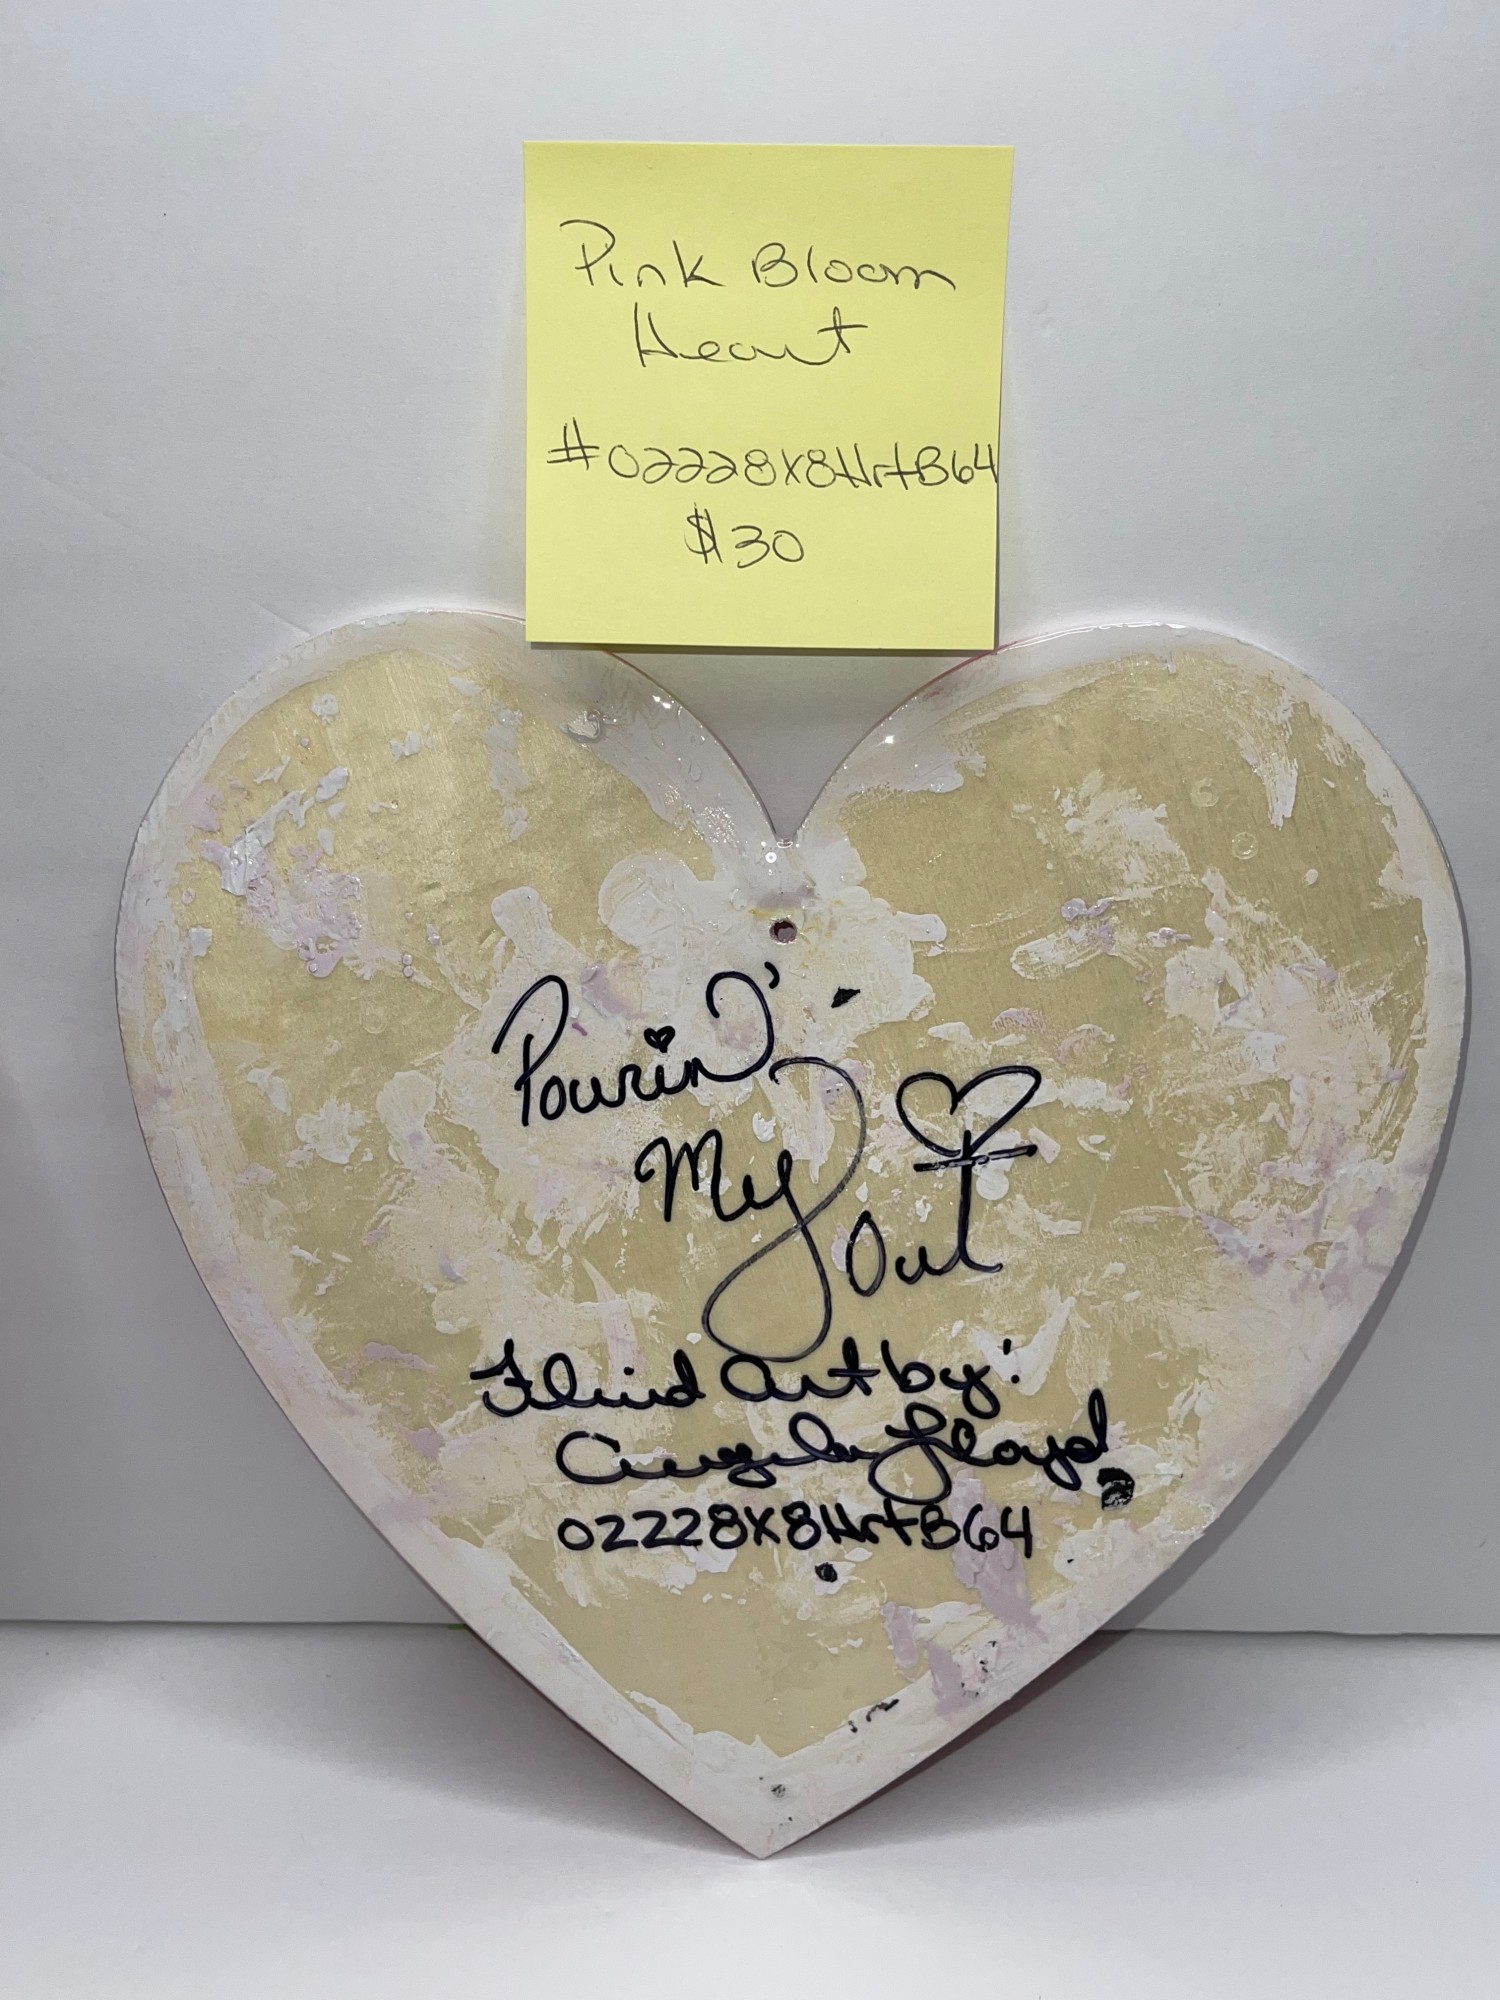 Pink Bloom
Heart
#02228X8HrtB64
$30
Pourin'
My
Out
Fluid Art by:
Angela Lloyd
02228X8HrtB64